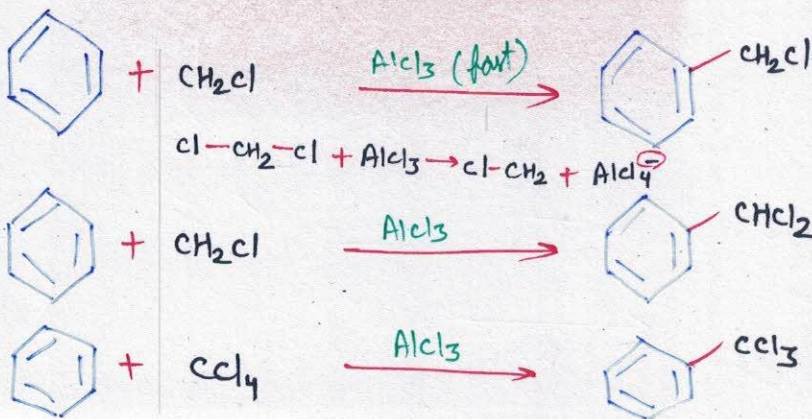 + CH₂Cl AlCl₃ (fast) → CH₂Cl
Cl—CH₂—Cl + AlCl₃ → Cl-CH₂ + AlCl₄⁻
+ CH₂Cl AlCl₃ → CHCl₂
+ CCl₄ AlCl₃ → CCl₃